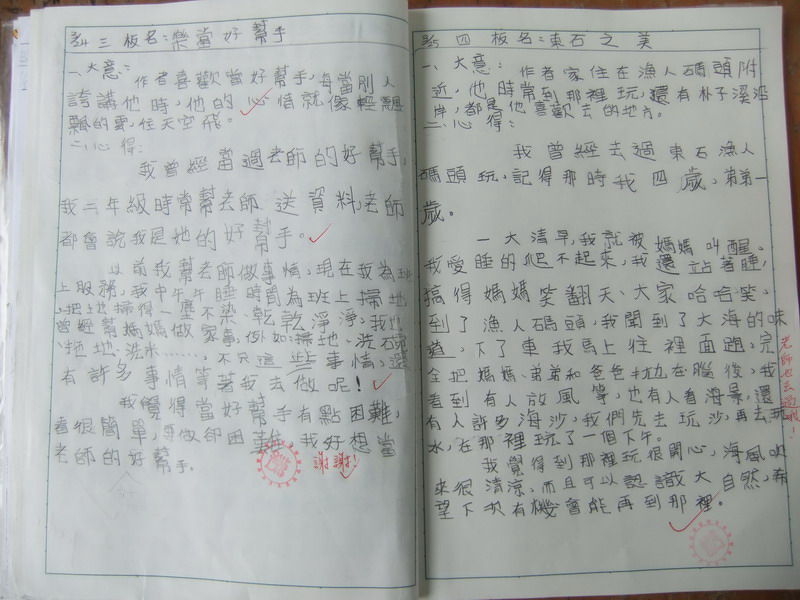 三 板名:樂當好幫手
一、大意:作者喜歡當好幫手,每當別人
誇講他時,他的心情就像輕飄
飄的雲,在天空飛。
二、心得:
我曾經當過老師的好幫手,
我三年級時常幫老師送資料,老師
都會說我是她的好幫手。
以前我幫老師做事情,現在我為班
上服務,我中午午睡時間為班上掃地
,把地掃得一塵不染、乾乾淨淨,我也
曾經幫媽媽做家事,例如:掃地、洗石頭
、拖地、洗米……,不只這些事情,還
有許多事情等著我去做呢!
我覺得當好幫手有點困難,
看很簡單,要做卻困難,我好想當
老師的好幫手。
謝謝!
四 板名:東石之美
一、大意:作者家住在漁人碼頭附
近,他時常到那裡玩,還有朴子溪沿
岸,都是他喜歡去的地方。
二、心得:
我曾經去過東石漁人
碼頭玩,記得那時我四歲,弟弟一
歲。
一大清早,我就被媽媽叫醒,
我愛睡的爬不起來,我還站著睡,
搞得媽媽笑翻天、大家哈哈笑,
到了漁人碼頭,我聞到了大海的味
道,下了車我馬上往裡面跑,完
全把媽媽、弟弟和爸爸拋在腦後,我
看到有人放風箏,也有人看海景,還
有人許多海沙,我們先去玩沙,再去玩
水,在那裡玩了一個下午。
我覺得到那裡玩很開心,海風吹
來很清涼,而且可以認識大自然,希
望下次有機會能再到那裡。
老師也去過哦!